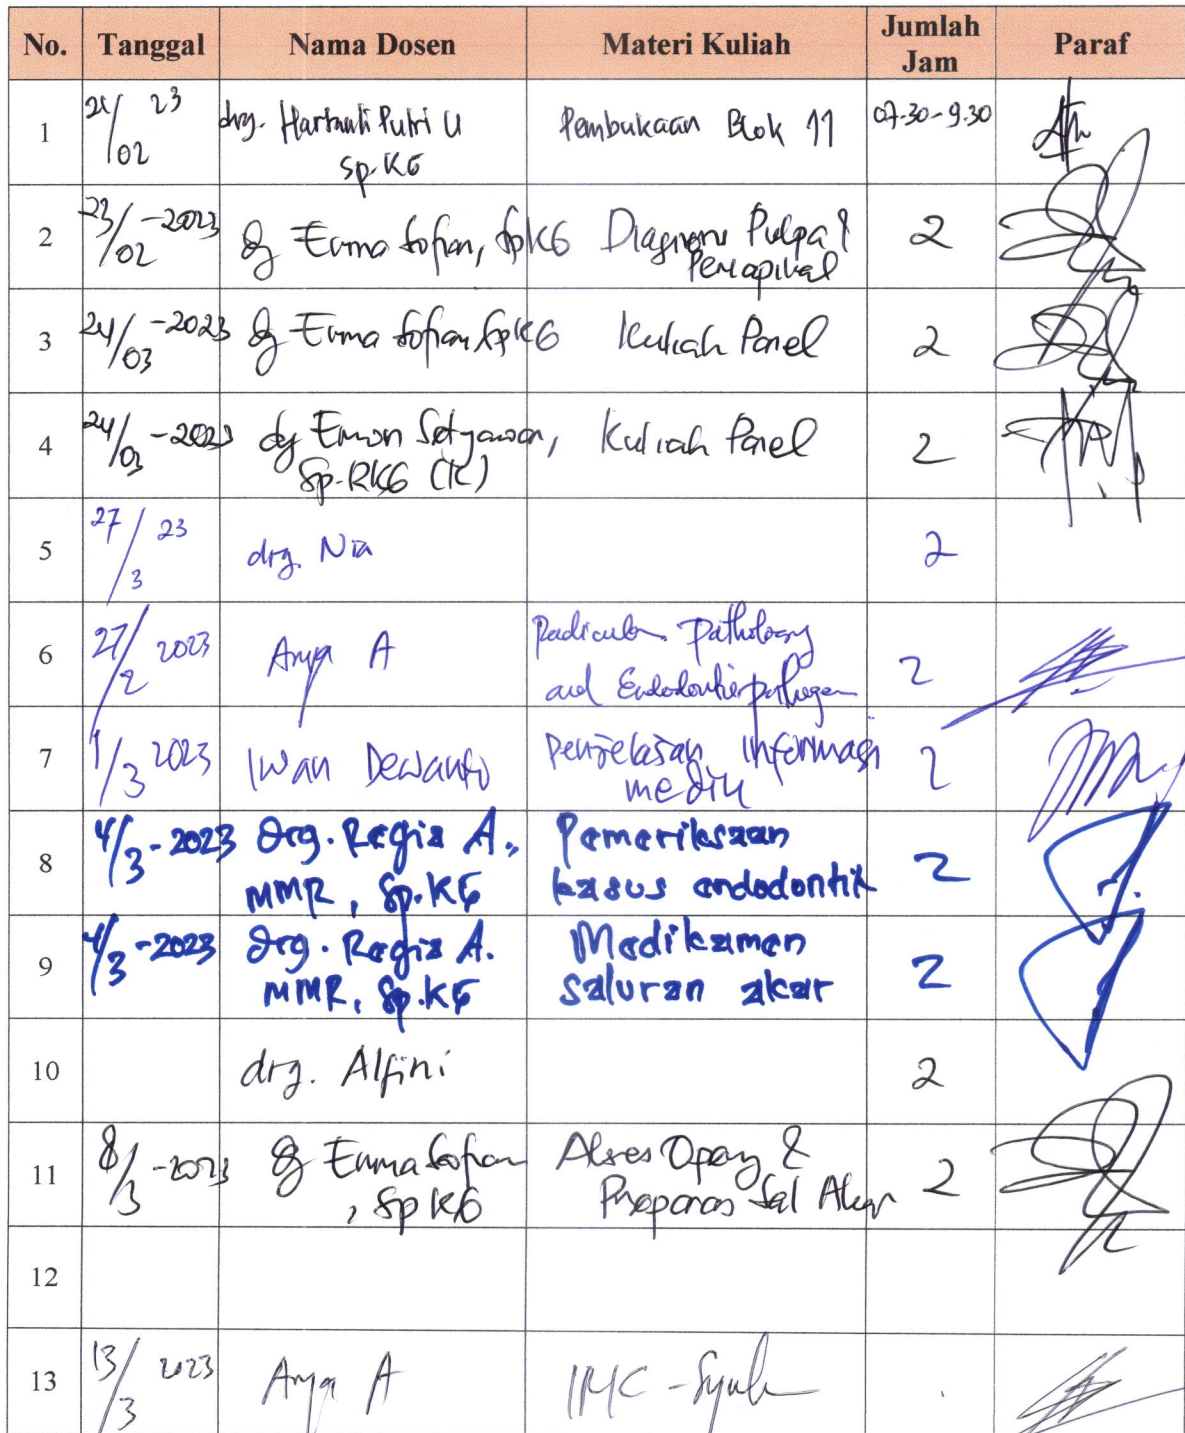 No. Tanggal Nama Dosen Materi Kuliah Jumlah Jam Paraf
1 /02 23 drg. Putri U Sp.KG Pembukaan Blok 11 07.30-9.30
2 23/02-2023 drg Erma Sofian, SpKG Diagnosis Pulpa & Periapikal 2
3 24/03-2023 drg Erma Sofian, SpKG Kuliah Panel 2
4 24/03-2023 drg Erwin Setyawan, Sp.RKG (K) Kuliah Panel 2
5 27/3 23 drg. Nia 2
6 27/2 2023 Arya A Radicular pathology and Endodontic pathogen 2
7 1/3 2023 Iwan Dewanto Penjelasan informasi medik 2
8 4/3-2023 drg. Regia A., MMR, Sp.KG Pemeriksaan kasus endodontik 2
9 4/3-2023 drg. Regia A. MMR, Sp.KG Medikamen saluran akar 2
10 drg. Alfini 2
11 8/3-2023 drg Erma Sofian, SpKG Akses Opening & Preparasi Sal Akar 2
12
13 13/3 2023 Arya A